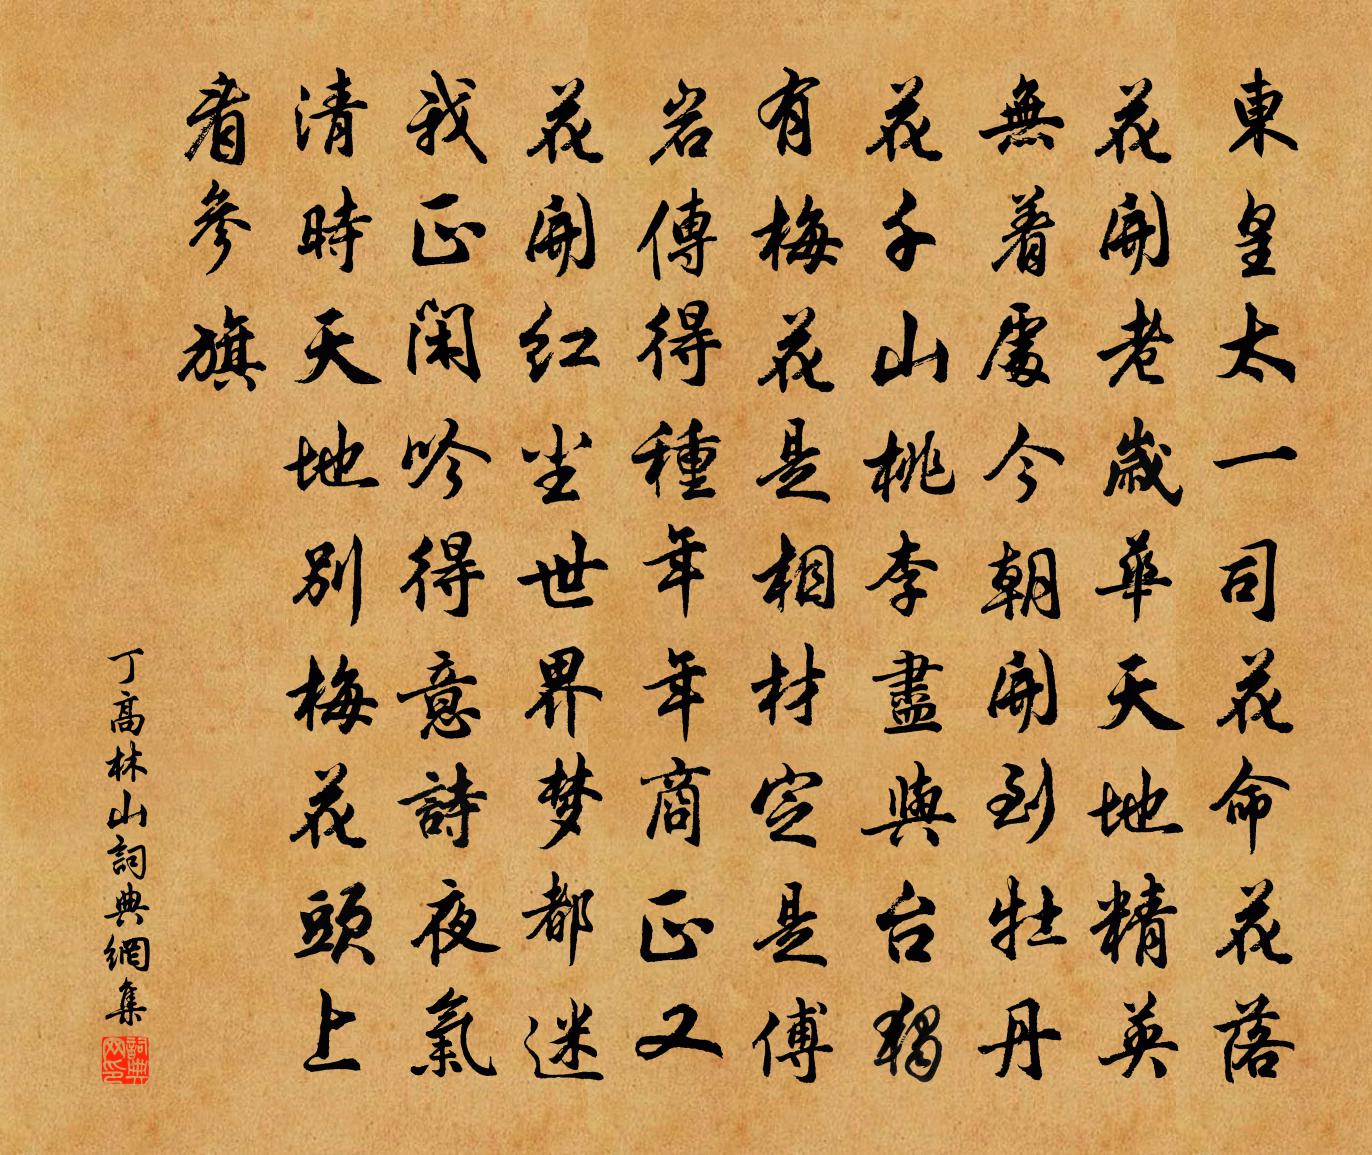 東皇太一司花命花落
花開老歲華天地精英
無着處今朝開到牡丹
花千山桃李盡與台獨
有梅花是相材定是傅
岩傳得種年年商正又
花開红尘世界梦都迷
我正闲吟得意詩夜氣
清時天地别梅花頭上
看參旗
丁高林山詞典網集
詞典网印